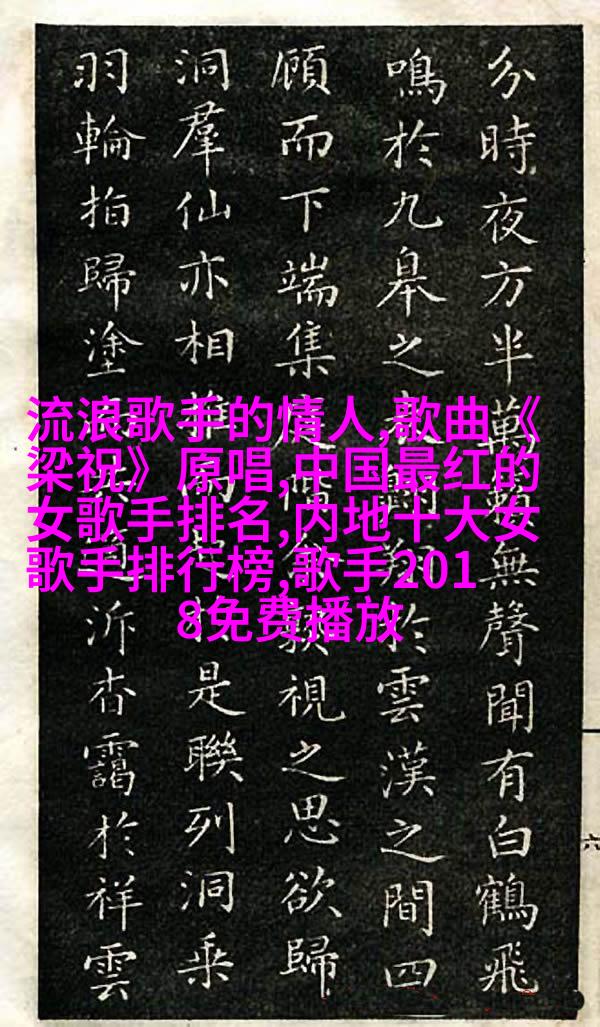 分時夜方半萬籟無聲聞有白鶴飛
鳴於九皋之翔於雲漢之間四
顧而下端集視之思欲歸
洞羣仙亦相是聯列洞乘
羽輪拍歸塗泝杳靄於祥雲
流浪歌手的情人,歌曲《
梁祝》原唱,中国最红的
女歌手排名,内地十大女
歌手排行榜,歌手201
8免费播放
六